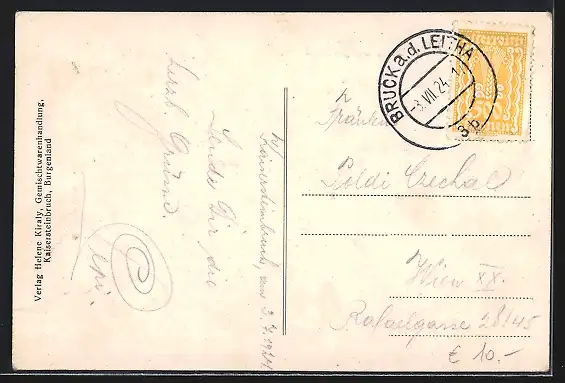 Verlag Helene Kiraly, Gemischtwarenhandlung,
Kaisersteinbruch, Burgenland
Kaisersteinbruch, am 3. 7. 1924
Sende Dir die
herzl. Grüsse.
Pepi.
BRUCK a.d. LEITHA
-3.VII.24
3b
Fräulein
Poldi Czechal
Wien XX.
Rafaelgasse 28/45
€ 10.-